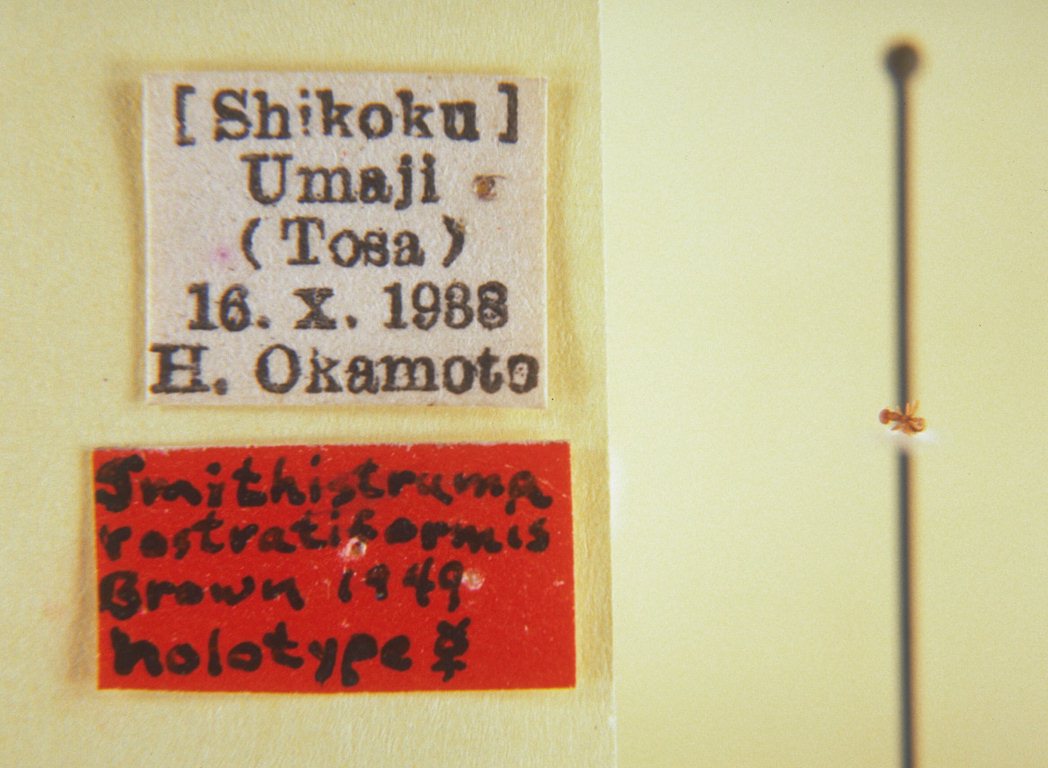 [Shikoku]
Umaji
(Tosa)
16. X. 1938
H. Okamoto
Smithistruma
rostratiformis
Brown 1949
holotype ☿